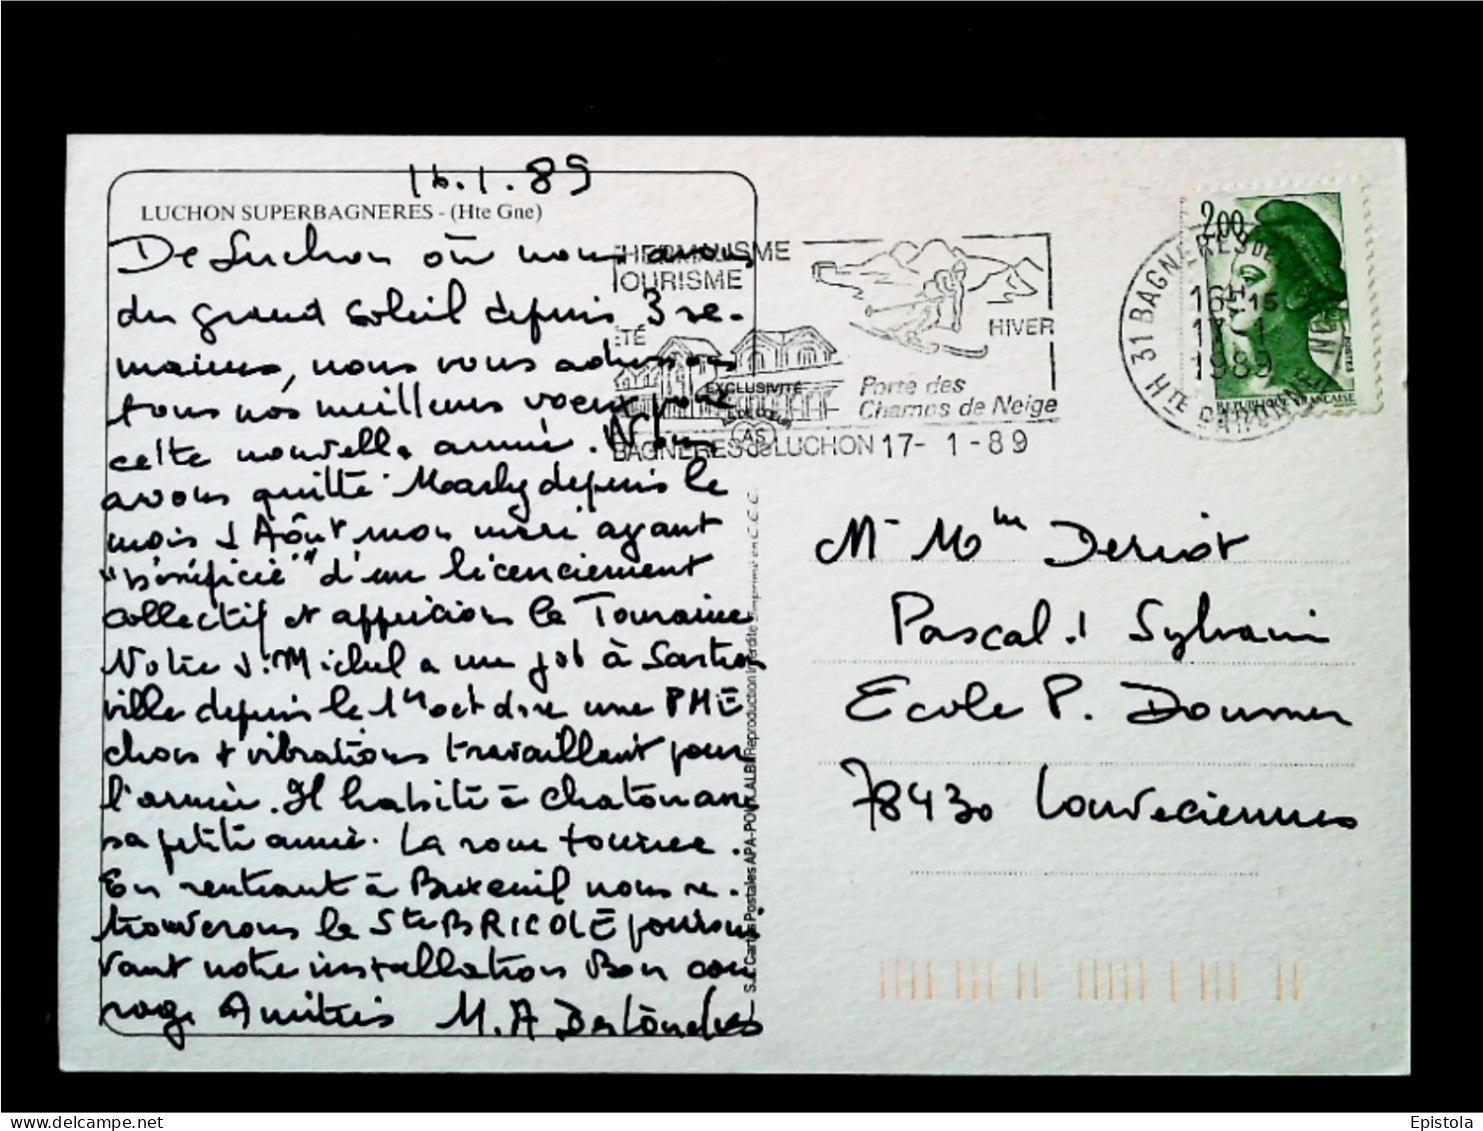 16.1.89
LUCHON SUPERBAGNERES - (Hte Gne)
De Luchon où nous avons
du grand soleil depuis 3 se-
maines, nous vous adressons
tous nos meilleurs voeux pour
cette nouvelle année. Nous
avons quitté Marly depuis le
mois d'Août mon mari ayant
"bénéficié" d'un licenciement
collectif et apprécions la Touraine
Notre J. Michel a un job à Sartrou
ville depuis le 1er oct dans une PME
chocs + vibrations travaillant pour
l'armée. Il habite à Chatou avec
sa petite amie. La roue tourne.
En rentrant à Buxeuil nous re-
trouverons la Sté BRICOLE poursui
vant notre installation Bon cou
rage Amitiés M. A Deslandes
THERMALISME
TOURISME
ETÉ
HIVER
Porte des
Champs de Neige
BAGNERES de LUCHON 17- 1 -89
EXCLUSIVITÉ
AS DE COEUR
AS
31 BAGNERES DE LUCHON
16H15
17 -1
1989
Hte GARONNE
2,00
POSTES
REPUBLIQUE FRANCAISE
S.A. Cartes Postales APA-POUX ALBI Reproduction Interdite Imprimé en C.E.E.
Mr Mme Deriot
Pascal . Sylvain
Ecole P. Doumer
78430 Louveciennes
delcampe.net
Epistola